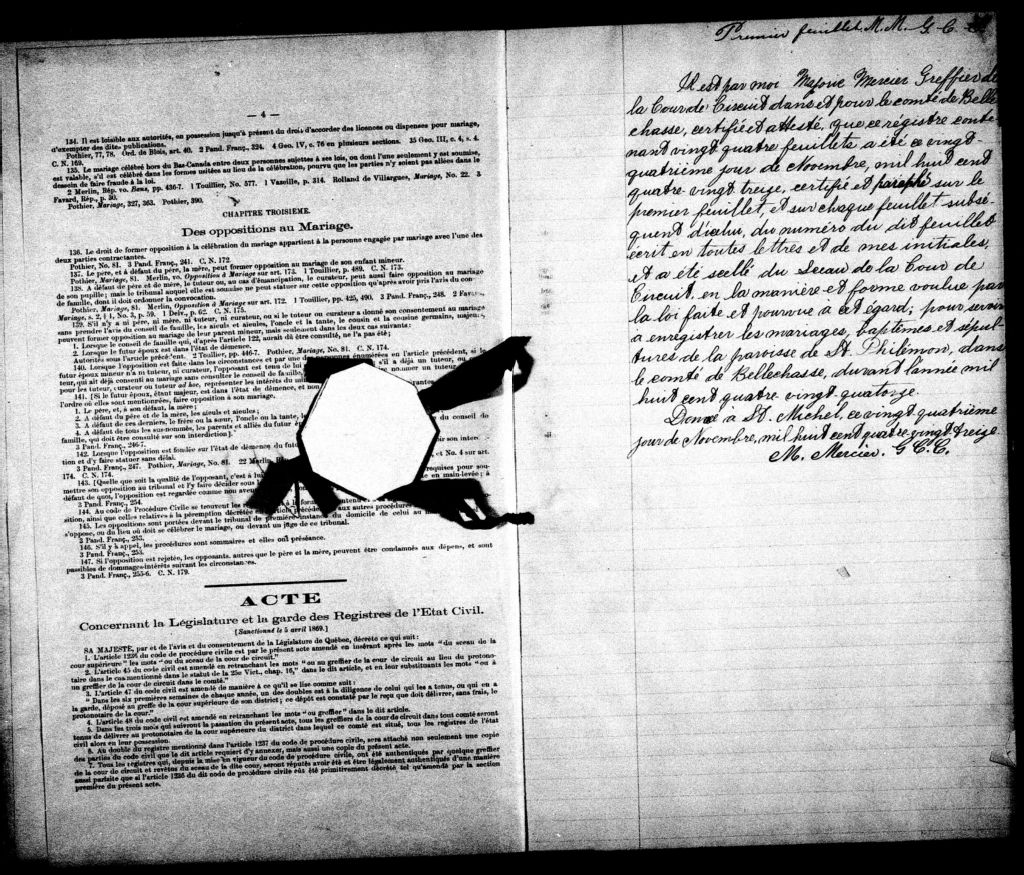 — 4 —
134. Il est loisible aux autorités, en possession jusqu'à présent du droit d'accorder des licences ou dispenses pour mariage,
d'exempter des dites publications.
Pothier, 77, 78. Ord. de Blois, art. 40. 2 Pand. Franç., 324. 4 Geo. IV, c. 76 en plusieurs sections. 35 Geo. III, c. 4, s. 4.
C. N. 169.
135. Le mariage célébré hors du Bas-Canada entre deux personnes sujettes à ses lois, ou dont l'une seulement y est soumise,
est valable, s'il est célébré dans les formes usitées au lieu de la célébration, pourvu que les parties n'y soient pas allées dans le
dessein de faire fraude à la loi.
2 Merlin, Rép. vo. Bans, pp. 436-7. 1 Touillier, No. 577. 1 Vazeille, p. 314. Rolland de Villargues, Mariage, No. 22. 3
Favard, Rép., p. 30.
Pothier, Mariage, 327, 363. Pothier, 390.
CHAPITRE TROISIEME.
Des oppositions au Mariage.
136. Le droit de former opposition à la célébration du mariage appartient à la personne engagée par mariage avec l'une des
deux parties contractantes.
Pothier, No. 81. 3 Pand. Franç., 241. C. N. 172.
137. Le père, et à défaut du père, la mère, peut former opposition au mariage de son enfant mineur.
Pothier, Mariage, 81. Merlin, vo. Opposition à Mariage sur art. 173. 1 Touillier, p. 489. C. N. 173.
138. A défaut de père et de mère, le tuteur ou, au cas d'émancipation, le curateur, peut aussi faire opposition au mariage
de son pupille; mais le tribunal auquel elle est soumise ne peut statuer sur cette opposition qu'après avoir pris l'avis du con-
de famille, dont il doit ordonner la convocation.
Pothier, Mariage, 81. Merlin, Opposition à Mariage sur art. 172. 1 Touillier, pp. 425, 490. 3 Pand. Franç., 248. 2
Mariage, s. 2, § 1, No. 5, p. 59. 1 Delv., p. 62. C. N. 175.
139. S'il n'y a ni père, ni mère, ni tuteur, ni curateur, ou si le tuteur ou curateur a donné son consentement au mariage
sans prendre l'avis du conseil de famille, les aïeuls et aïeules, l'oncle et la tante, le cousin et la cousine germains, majeurs,
peuvent former opposition au mariage de leur parent mineur, mais seulement dans les deux cas suivants:
1. Lorsque le conseil de famille qui, d'après l'article 122, aurait dû être consulté, ne l'a pas été;
2. Lorsque le futur époux est dans l'état de démence.
Autorités sous l'article précédent. 2 Touillier, pp. 446-7. Pothier, Mariage, No. 81. C. N. 174.
140. Lorsque l'opposition est faite dans les circonstances et par une des personnes énumérées en l'article précédent, si le
futur époux mineur n'a ni tuteur, ni curateur, l'opposant est tenu de lui
teur, qui ait déjà consenti au mariage sans consulter le conseil de famille,
pour les tuteur, curateur ou tuteur ad hoc, représenter les intérêts du
141. [Si le futur époux, étant majeur, est dans l'état de démence, et non
l'ordre où elles sont mentionnées, faire opposition à son mariage.
1. Le père, et, à son défaut, la mère;
2. A défaut du père et de la mère, les aïeuls et aïeules;
3. A défaut de ces derniers, le frère ou la sœur, l'oncle ou la tante, le
4. A défaut de tous les sus-nommés, les parents et alliés du futur é
famille, qui doit être consulté sur son interdiction].
3 Pand. Franç., 246-7.
142. Lorsque l'opposition est fondée sur l'état de démence du futur
tion et d'y faire statuer sans délai.
3 Pand. Franç., 247. Pothier, Mariage, No. 81. 22 Merlin
174. C. N. 174.
143. [Quelle que soit la qualité de l'opposant, c'est à lui
mettre son opposition au tribunal et l'y faire décider sous
défaut de quoi, l'opposition est regardée comme non avenue
3 Pand. Franç., 254.
144. Au code de Procédure Civile se trouvent les
sition, ainsi que celles relatives à la péremption décrétée
145. Les oppositions sont portées devant le tribunal de première instance du domicile de celui au
s'oppose, ou du lieu où doit se célébrer le mariage, ou devant un juge de ce tribunal.
3 Pand. Franç., 253.
146. S'il y a appel, les procédures sont sommaires et elles ont préséance.
3 Pand. Franç., 255.
147. Si l'opposition est rejetée, les opposants, autres que le père et la mère, peuvent être condamnés aux dépens, et sont
passibles de dommages-intérêts suivant les circonstances.
3 Pand. Franç., 255-6. C. N. 179.
ACTE
Concernant la Législature et la garde des Registres de l'Etat Civil.
[Sanctionné le 5 avril 1869.]
SA MAJESTÉ, par et de l'avis et du consentement de la Législature de Québec, décrète ce qui suit:
1. L'article 1236 du code de procédure civile est par le présent acte amendé en insérant après les mots "du sceau de la
cour supérieure" les mots "ou du sceau de la cour de circuit."
2. L'article 45 du code civil est amendé en retranchant les mots "ou au greffier de la cour de circuit au lieu du protono-
taire dans le cas mentionné dans le statut de la 25e Vict., chap. 16," dans le dit article, et en leur substituant les mots "ou à
un greffier de la cour de circuit dans le comté."
3. L'article 47 du code civil est amendé de manière à ce qu'il se lise comme suit:
"Dans les six premières semaines de chaque année, un des doubles est à la diligence de celui qui les a tenus, ou qui en a
la garde, déposé au greffe de la cour supérieure de son district; ce dépôt est constaté par le reçu que doit délivrer, sans frais, le
protonotaire de la cour."
4. L'article 48 du code civil est amendé en retranchant les mots "ou greffier" dans le dit article.
5. Dans les trois mois qui suivront la passation du présent acte, tous les greffiers de la cour de circuit dans tout comté seront
tenus de délivrer au protonotaire de la cour supérieure du district dans lequel ce comté est situé, tous les registres de l'état
civil alors en leur possession.
6. Au double du registre mentionné dans l'article 1237 du code de procédure civile, sera attaché non seulement une copie
des parties du code civil que le dit article requiert d'y annexer, mais aussi une copie du présent acte.
7. Tous les registres qui, depuis la mise en vigueur du code de procédure civile, ont été authentiqués par quelque greffier
de la cour de circuit et revêtus du sceau de la dite cour, seront réputés avoir été et être légalement authentiqués d'une manière
aussi parfaite que si l'article 1236 du dit code de procédure civile eût été primitivement décrété tel qu'amendé par la section
première du présent acte.
Premier feuillet. M. M. G. C. C.
Il est par moi Majorie Mercier Greffier de
la Cour de Circuit dans et pour le comté de Belle
chasse, certifié et attesté, que ce régistre conte-
nant vingt quatre feuillets a été ce vingt-
quatrième jour de Novembre, mil huit cent
quatre-vingt treize, certifié et paraphé sur le
premier feuillet, et sur chaque feuillet subsé-
quent d'icelui, du numéro du dit feuillet
écrit en toutes lettres et de mes initiales,
et a été scellé du Sceau de la Cour de
Circuit, en la manière et forme voulue par
la loi faite et pourvue à cet égard; pour servir
à enregistrer les mariages, baptêmes et sépul-
tures de la paroisse de St. Philémon, dans
le comté de Bellechasse, durant l'année mil
huit cent quatre-vingt-quatorze.
Donné à St. Michel, ce vingt-quatrième
jour de Novembre, mil huit cent quatre-vingt treize
M. Mercier. G. C. C.